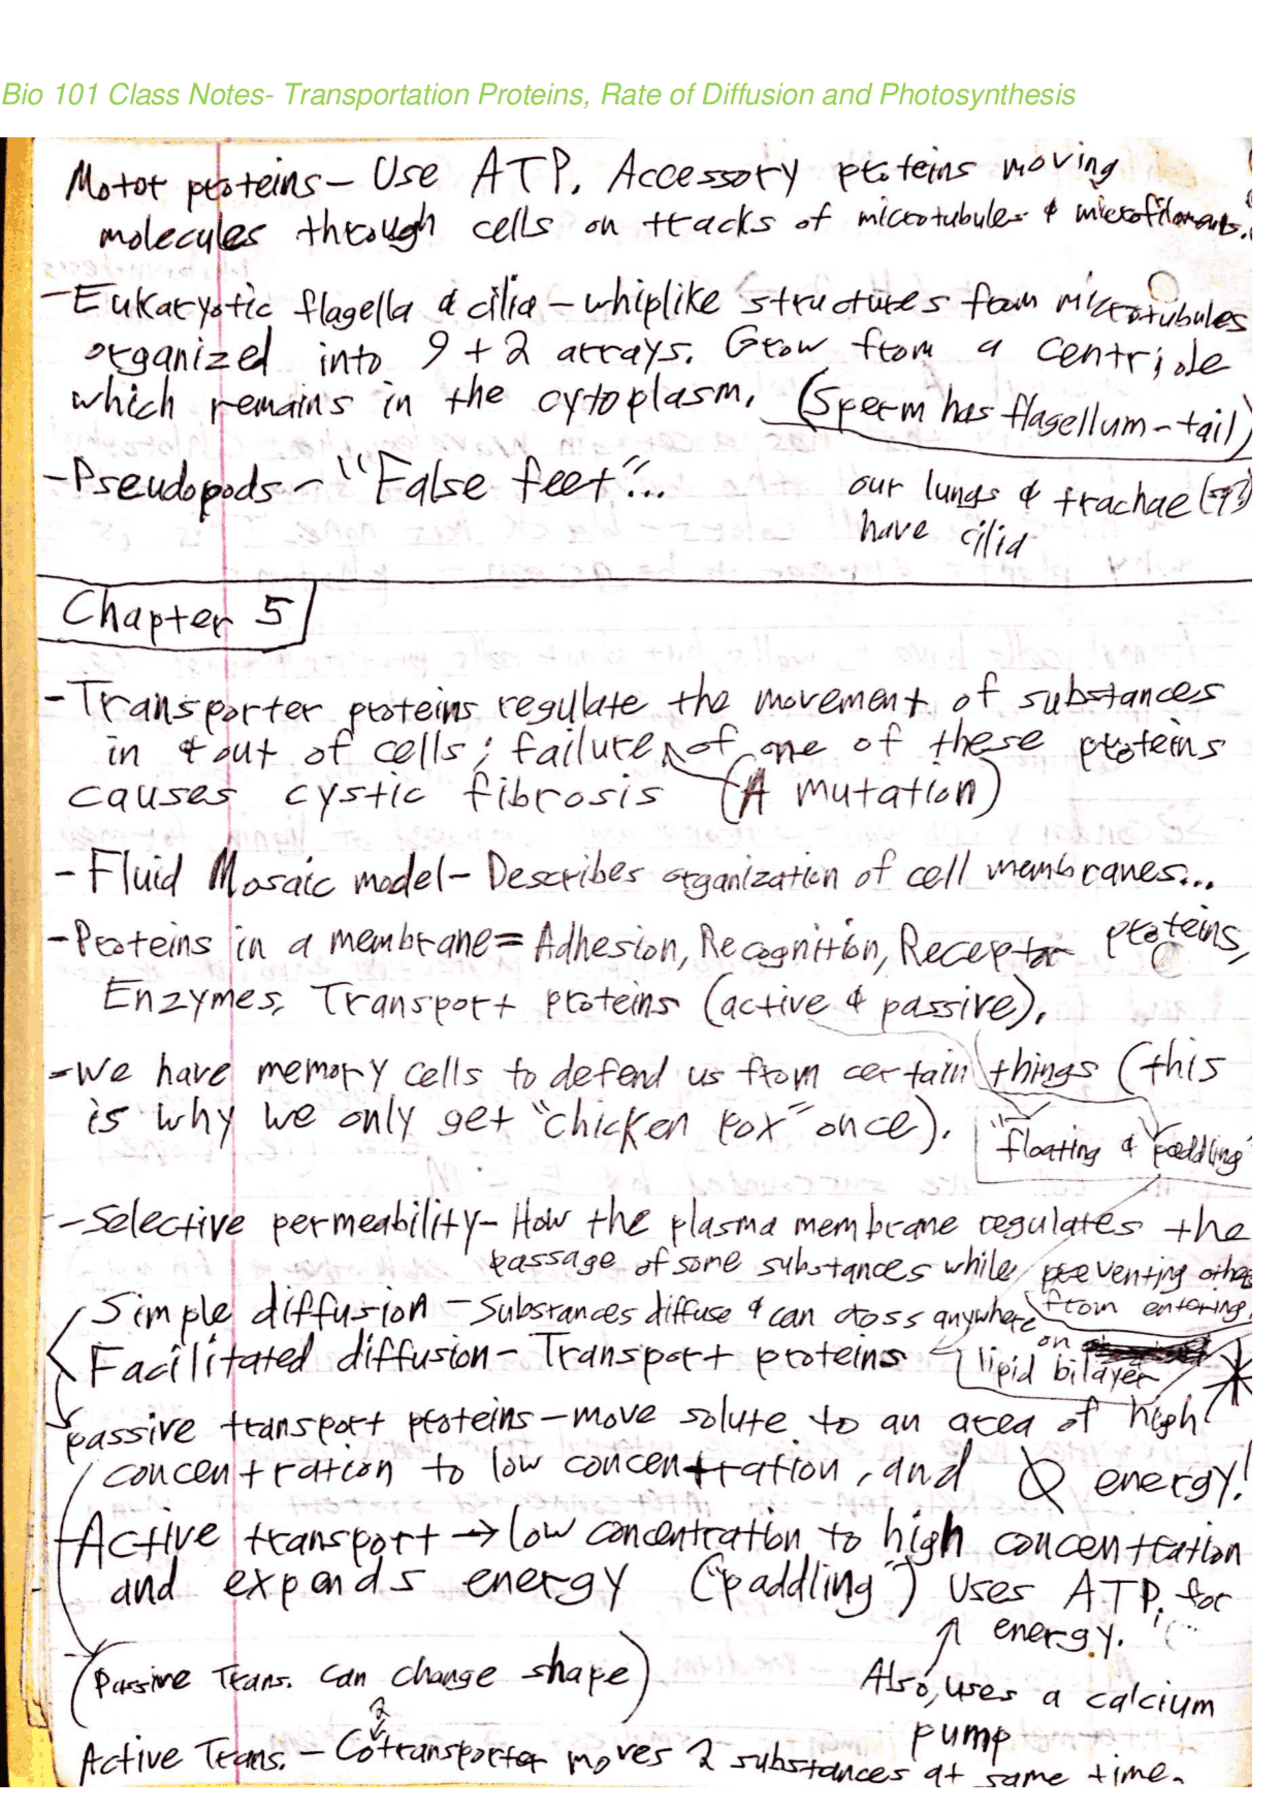 Bio 101 Class Notes- Transportation Proteins, Rate of Diffusion and Photosynthesis
Motor proteins – Use ATP. Accessory proteins moving
molecules through cells on tracks of microtubules & microfilaments.
- Eukaryotic flagella & cilia – whiplike structures from microtubules
organized into 9 + 2 arrays. Grow from a centriole
which remains in the cytoplasm. (Sperm has flagellum - tail)
- Pseudopods – "False feet"...
our lungs & trachae (sp?)
have cilia
Chapter 5
- Transporter proteins regulate the movement of substances
in & out of cells; failure of one of these proteins
causes cystic fibrosis (A mutation)
- Fluid Mosaic model – Describes organization of cell membranes...
- Proteins in a membrane = Adhesion, Recognition, Receptor proteins,
Enzymes, Transport proteins (active & passive).
- We have memory cells to defend us from certain things (this
is why we only get "chicken pox" once).
"floating & paddling"
- Selective permeability – How the plasma membrane regulates the
passage of some substances while preventing other
from entering.
Simple diffusion – Substances diffuse & can cross anywhere
on
lipid bilayer
Facilitated diffusion – Transport proteins
passive transport proteins – move solute to an area of high
concentration to low concentration, and Ø energy!
Active transport → low concentration to high concentration
and expends energy ("paddling") uses ATP. for
energy.
(Passive Trans. can change shape)
Also, uses a calcium
pump
2
Active Trans. – Cotransporter moves 2 substances at same time.